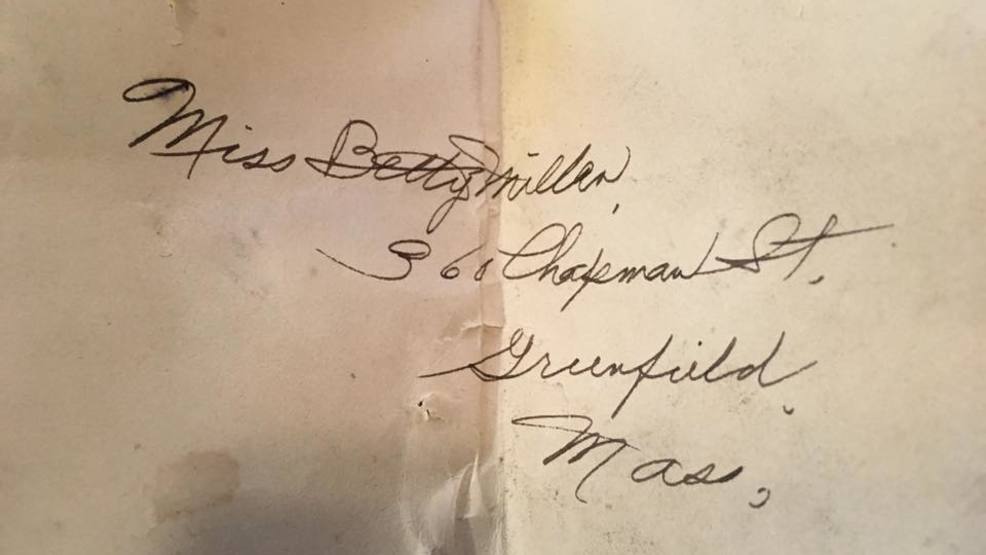 Miss Betty Miller,
360 Chapman St.
Greenfield,
Mass,